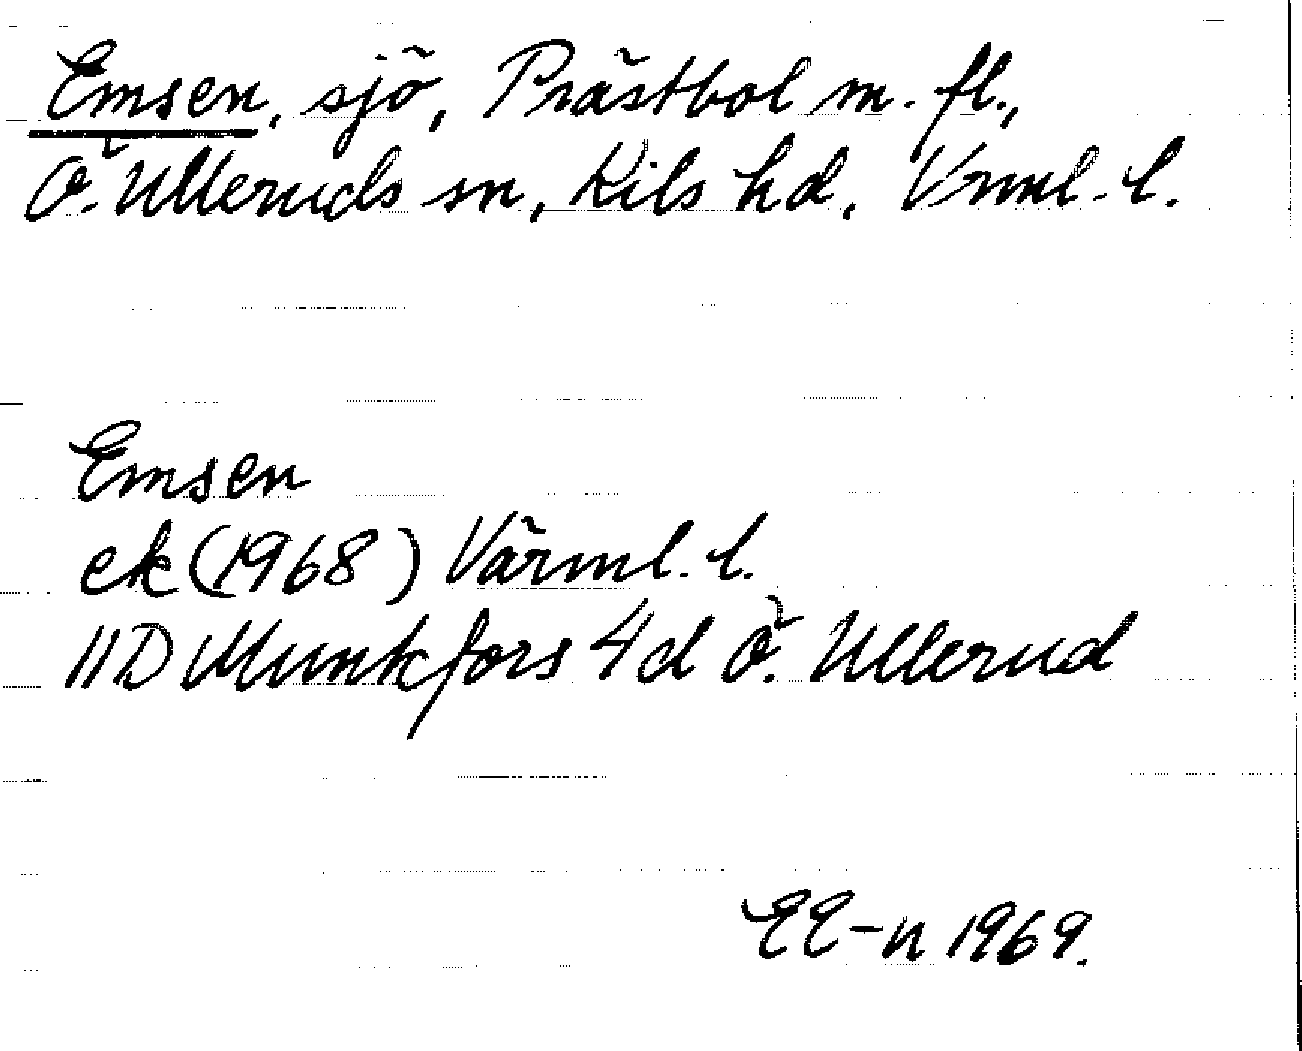 Emsen, sjö, Prästbol m. fl.,
Ö. Ulleruds sn, Kils hd, Vrml. l.
Emsen
ek (1968) Värml. l.
11D Munkfors 4d Ö. Ullerud
EE-n 1969.